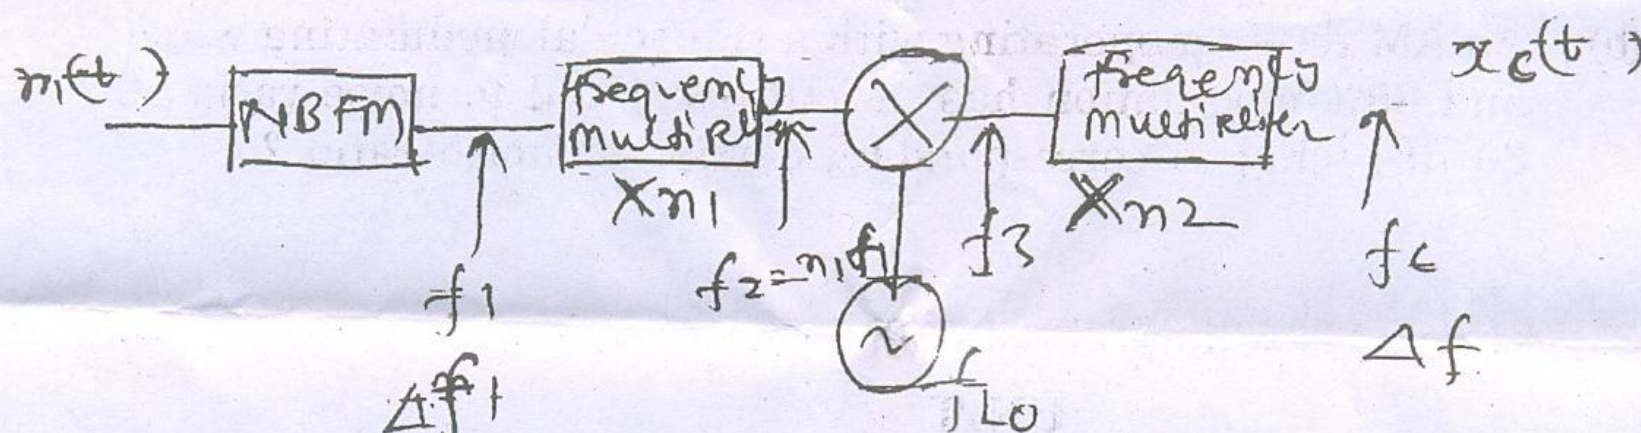 m(t)
NBFM
frequency
multiplier
Xn1
freqency
multiplier
Xn2
xc(t)
f1
Δf1
f2=n1f1
f3
~
fLO
fc
Δf